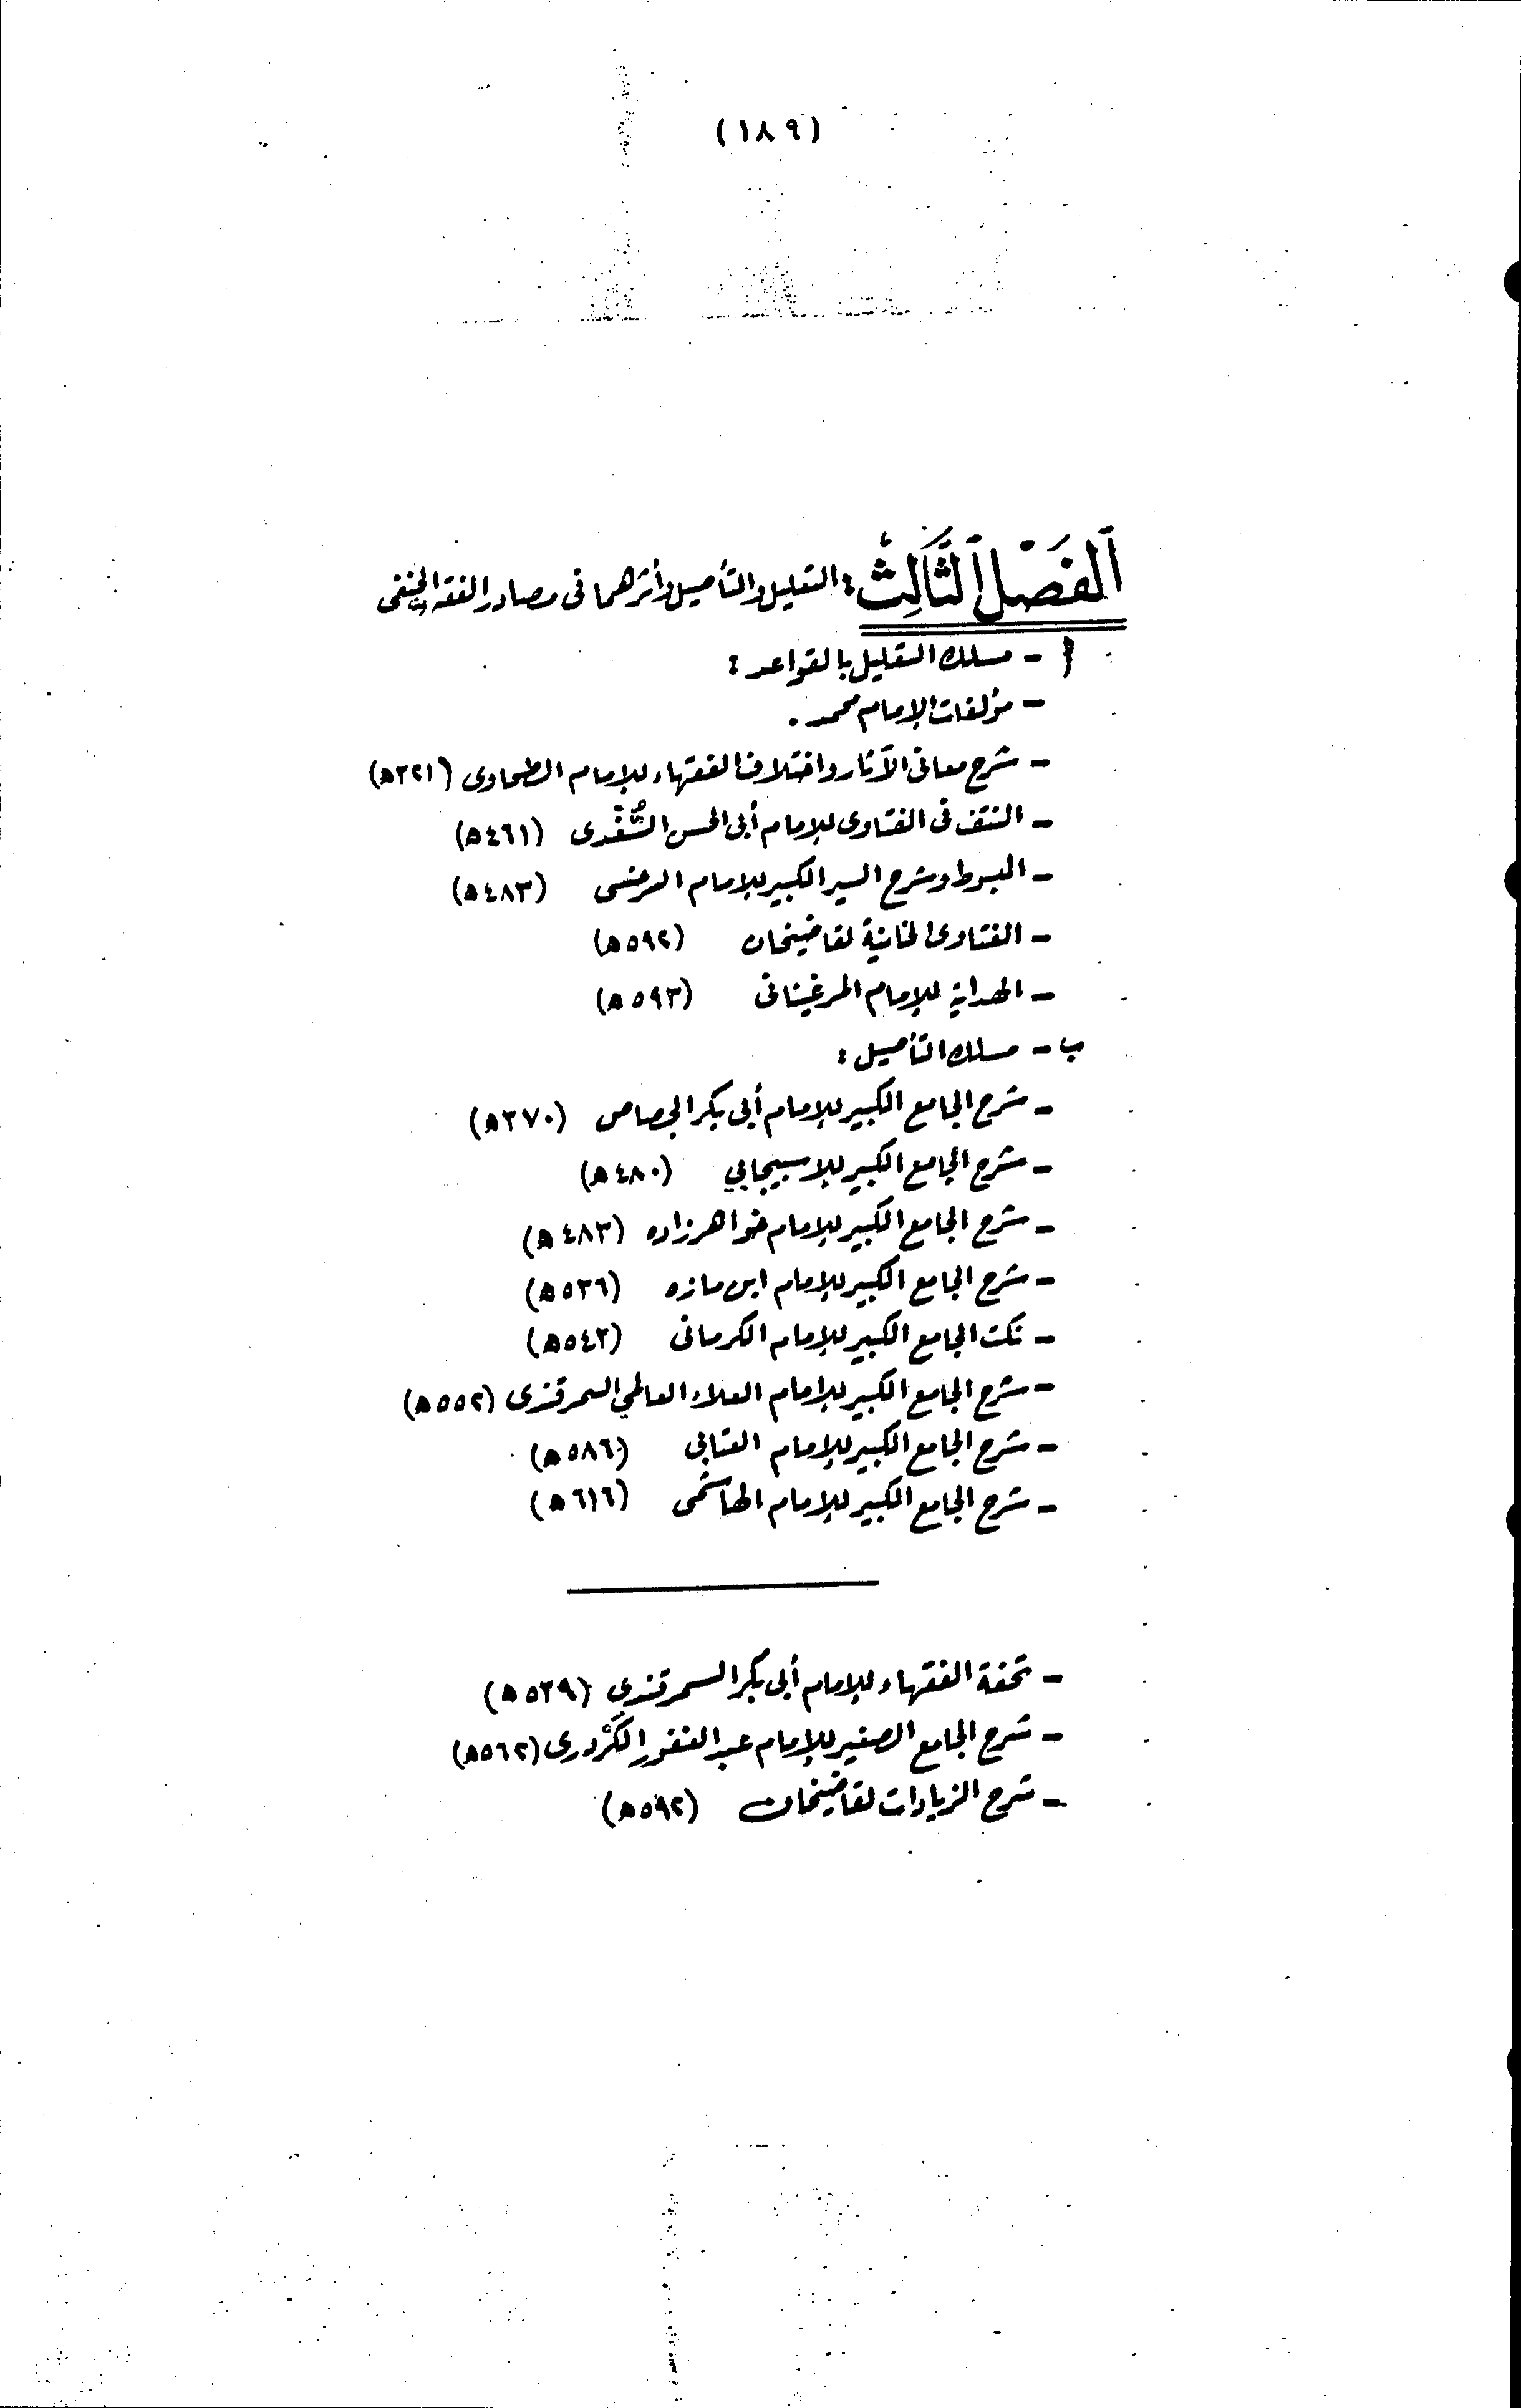 (١٨٩)
اَلفَصْل اَلثَّالِثُ : التعليل والتأصيل وأثرهما في مصادر الفقه الحنفى
أ - مسلك التعليل بالقواعد :
- مؤلفات الإمام محمد .
- شرح معانى الآثار واختلاف الفقهاء للإمام الطحاوى (٣٢١ه)
- النتف فى الفتاوى للإمام أبى الحسن السُّغْدى (٤٦١ه)
- المبسوط وشرح السير الكبير للإمام السرخسى (٤٨٣ه)
- الفتاوى الخانية لقاضيخان (٥٩٢ه)
- الهداية للإمام المرغينانى (٥٩٣ه)
ب - مسلك التأصيل :
- شرح الجامع الكبير للإمام أبى بكر الجصاص (٣٧٠ه)
- شرح الجامع الكبير للإسبيجابي (٤٨٠ه)
- شرح الجامع الكبير للإمام خواهرزاده (٤٨٣ه)
- شرح الجامع الكبير للإمام ابن مازه (٥٣٦ه)
- نكت الجامع الكبير للإمام الكرمانى (٥٤٣ه)
- شرح الجامع الكبير للإمام العلاء العالمي السمرقندى (٥٥٢ه)
- شرح الجامع الكبير للإمام العتابى (٥٨٦ه)
- شرح الجامع الكبير للإمام الهاشمى (٦١٦ه)
- تحفة الفقهاء للإمام أبى بكر السمرقندي (٥٣٩ه)
- شرح الجامع الصغير للإمام عبد الغفور الكَرْدرى (٥٦٢ه)
- شرح الزيادات لقاضيخان (٥٩٢ه)